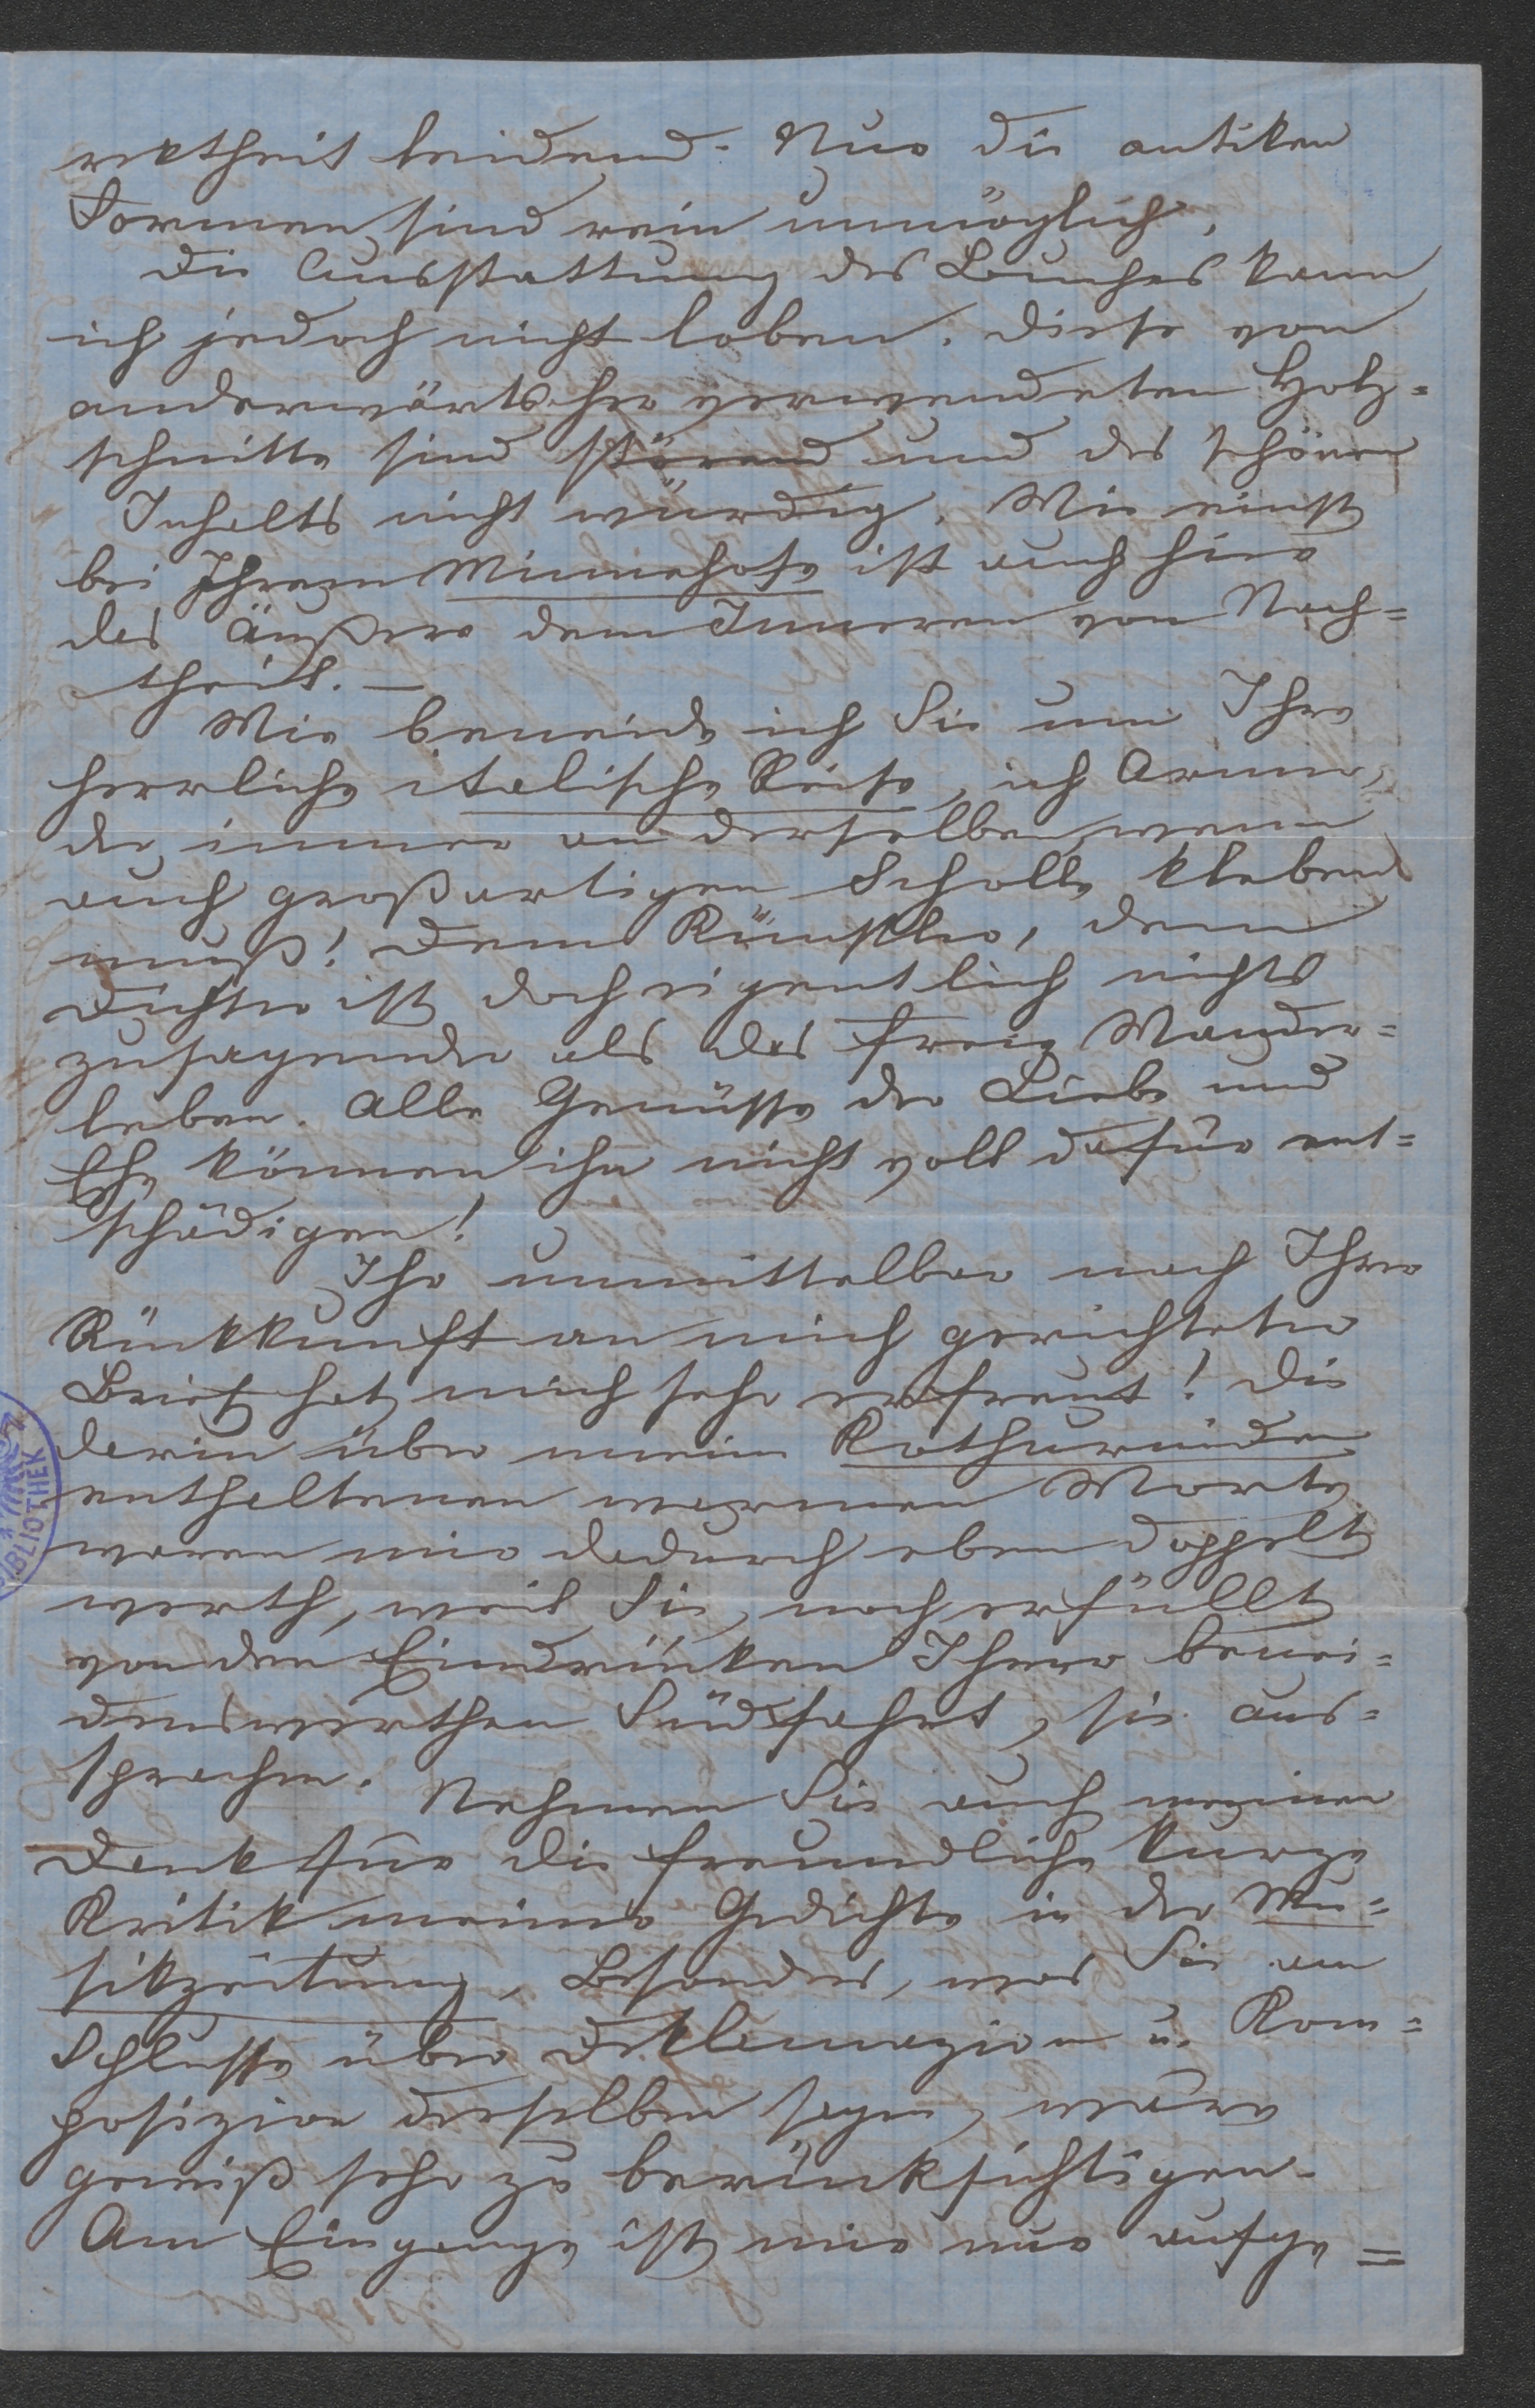 rektheit leidend. Nur die antiken
Formen sind rein unmöglich.
Die Ausstattung des Buches kann
ich jedoch nicht loben. Diese von
anderwärts her verwendeten Holz=
schnitte sind störend und des schönen
Inhalts nicht würdig. Wie einst
bei Ihrem Minnehofe ist auch hier
das Äußere dem Inneren von Nach=
theil. —
Wie beneide ich Sie um Ihre
herrliche italische Reise, ich Armer,
der immer an derselben, wenn
auch großartigen Scholle kleben
muß! Dem Künstler, dem
Dichter ist doch eigentlich nichts
zusagender als das freie Wander=
leben. Alle Genüsse der Liebe und
Ehe können ihn nicht voll dafür ent=
schädigen!
Ihr unmittelbar nach Ihrer
Rückkunft an mich gerichteter
Brief hat mich sehr erfreut! Die
darin über meine Kothurniden
enthaltenen warmen Worte
waren mir dadurch eben doppelt
werth, weil Sie, noch erfüllt
von den Eindrücken Ihrer benei=
denswerthen Südfahrt, sie aus=
sprachen. Nehmen Sie auch meinen
Dank für die freundliche kurze
Kritik meiner Gedichte in der Mu=
sikzeitung. Besonders, was Sie am
Schlusse über Deklamazion u. Kom=
posizion derselben sagen, wäre
gewiß sehr zu berücksichtigen.
Am Eingange ist mir nur aufge=
BIBLIOTHEK